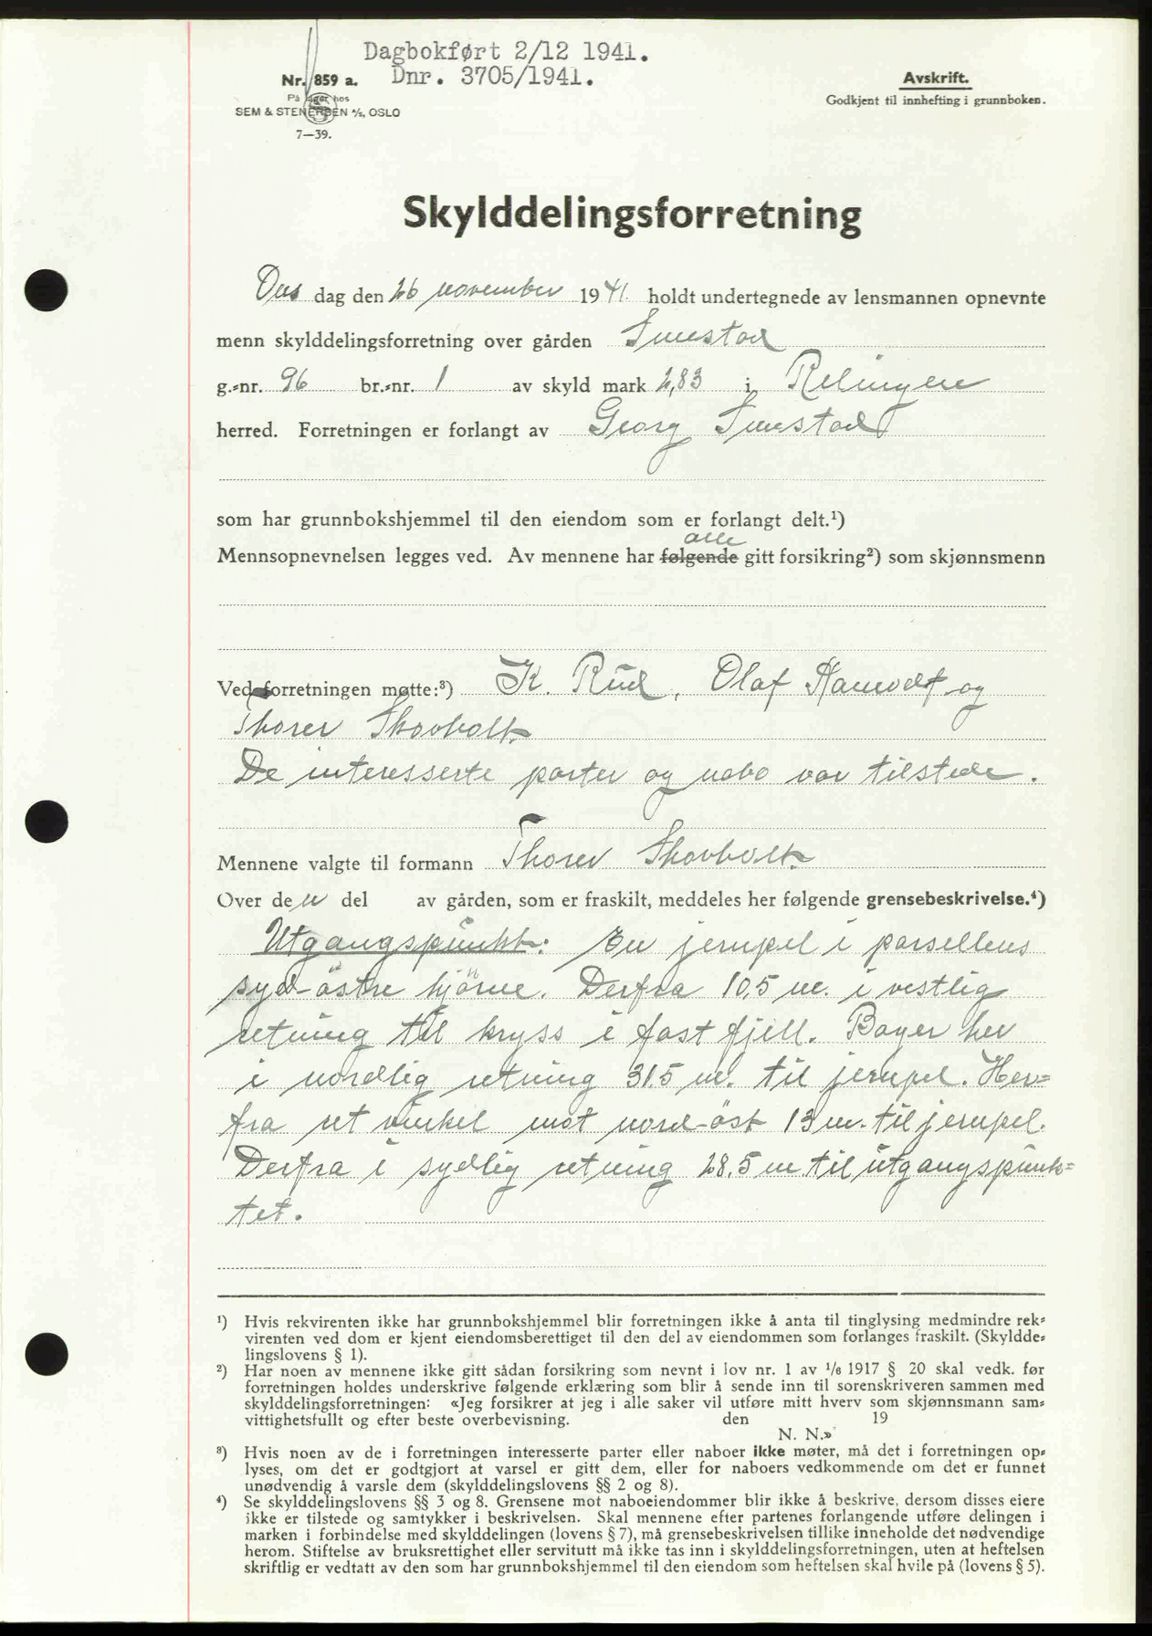 Dagbokført 2/12 1941.
Nr. 859 a. Dnr. 3705/1941.
Avskrift.
På lager hos
Godkjent til innhefting i grunnboken.
SEM & STENERSEN A/S, OSLO
7—39.
Skylddelingsforretning
Ons dag den 26 november 1941. holdt undertegnede av lensmannen opnevnte
menn skylddelingsforretning over gården Smestad
g.-nr. 96 br.-nr. 1 av skyld mark 2,83 i Relingen
herred. Forretningen er forlangt av Georg Smestad
som har grunnbokshjemmel til den eiendom som er forlangt delt.¹)
alle
Mennsopnevnelsen legges ved. Av mennene har følgende gitt forsikring²) som skjønnsmenn
Ved forretningen møtte:³) K. Rud, Olaf og
Thorer Skovholt.
De interesserte parter og nabo var tilstede.
Mennene valgte til formann Thorer Skovholt
Over den del av gården, som er fraskilt, meddeles her følgende grensebeskrivelse.⁴)
Utgangspunkt: En jernpel i parsellens
syd-østre hjørne. Derfra 10,5 m. i vestlig
retning til kryss i fast fjell. Bøyer her
i nordlig retning 31,5 m. til jernpel. Her-
fra ret vinkel mot nord-øst 13 m. til jernpel.
Derfra i sydlig retning 28,5 m. til utgangspunk-
tet.
¹) Hvis rekvirenten ikke har grunnbokshjemmel blir forretningen ikke å anta til tinglysing medmindre rek-
virenten ved dom er kjent eiendomsberettiget til den del av eiendommen som forlanges fraskilt. (Skyldde-
lingslovens § 1).
²) Har noen av mennene ikke gitt sådan forsikring som nevnt i lov nr. 1 av 1/6 1917 § 20 skal vedk. før
forretningen holdes underskrive følgende erklæring som blir å sende inn til sorenskriveren sammen med
skylddelingsforretningen: «Jeg forsikrer at jeg i alle saker vil utføre mitt hverv som skjønnsmann sam-
vittighetsfullt og efter beste overbevisning. den 19
N. N.»
³) Hvis noen av de i forretningen interesserte parter eller naboer ikke møter, må det i forretningen op-
lyses, om det er godtgjort at varsel er gitt dem, eller for naboers vedkommende om det er funnet
unødvendig å varsle dem (skylddelingslovens §§ 2 og 8).
⁴) Se skylddelingslovens §§ 3 og 8. Grensene mot naboeiendommer blir ikke å beskrive, dersom disses eiere
ikke er tilstede og samtykker i beskrivelsen. Skal mennene efter partenes forlangende utføre delingen i
marken i forbindelse med skylddelingen (lovens § 7), må grensebeskrivelsen tillike inneholde det nødvendige
herom. Stiftelse av bruksrettighet eller servitutt må ikke tas inn i skylddelingsforretningen, uten at heftelsen
skriftlig er vedtatt av den som har grunnbokshjemmel til den eiendom som heftelsen skal hvile på (lovens § 5).